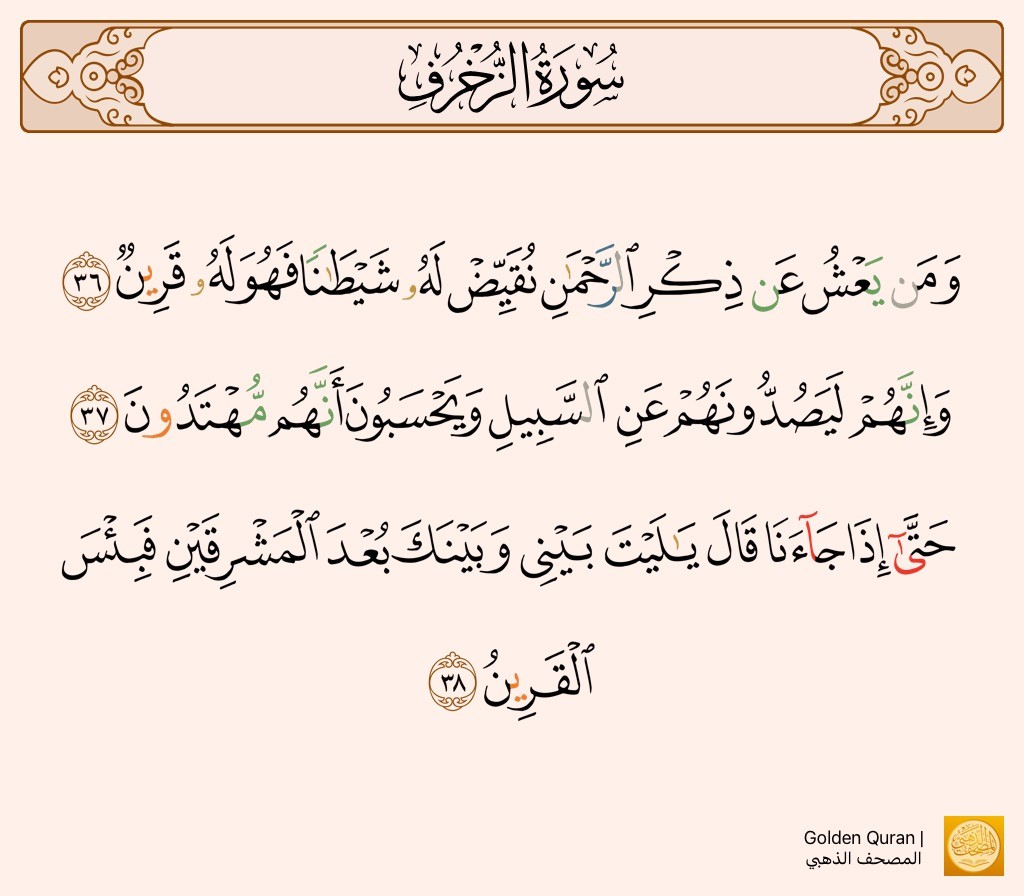 سُورَةُ الزُّخْرُفِ
وَمَن يَعْشُ عَن ذِكْرِ ٱلرَّحْمَٰنِ نُقَيِّضْ لَهُۥ شَيْطَٰنًا فَهُوَ لَهُۥ قَرِينٌ ٣٦
وَإِنَّهُمْ لَيَصُدُّونَهُمْ عَنِ ٱلسَّبِيلِ وَيَحْسَبُونَ أَنَّهُم مُّهْتَدُونَ ٣٧
حَتَّىٰٓ إِذَا جَآءَنَا قَالَ يَٰلَيْتَ بَيْنِى وَبَيْنَكَ بُعْدَ ٱلْمَشْرِقَيْنِ فَبِئْسَ
ٱلْقَرِينُ ٣٨
Golden Quran |
المصحف الذهبي